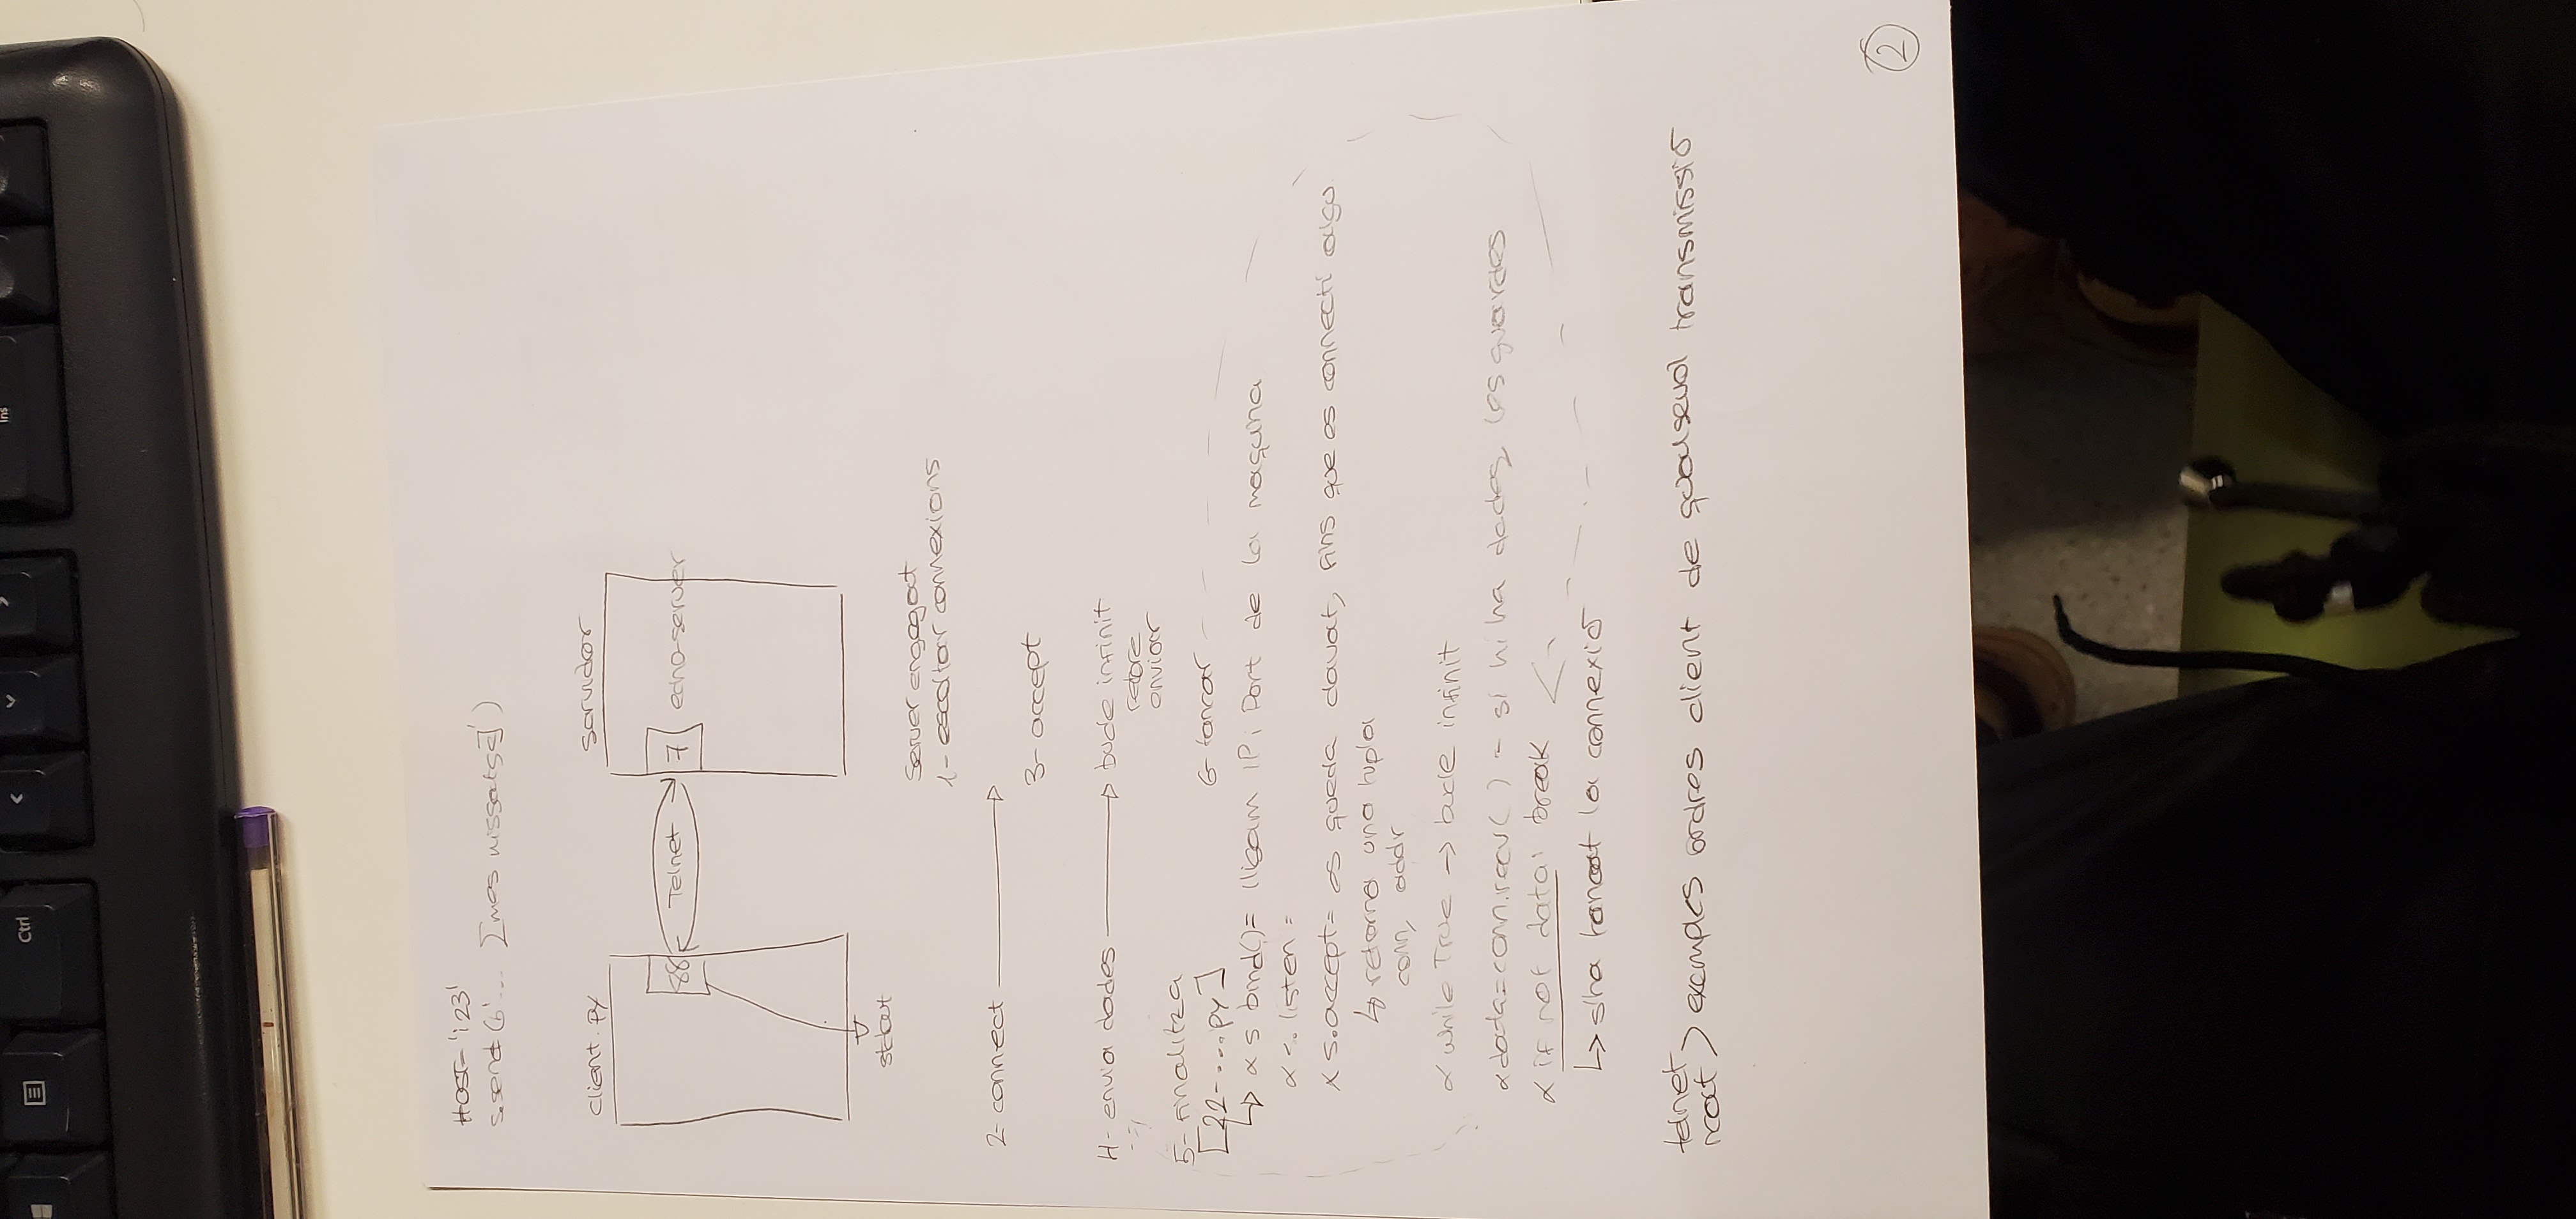 Ctrl
Ins
HOST='i23'
s.send(b'... [mes missatge]')
client.py
servidor
88
Telnet
7
echo-server
stdout
Server engegat
1- escoltar connexions
2- connect
3- accept
4- envia dades
bucle infinit
rebre
enviar
5- finalitza
6- tancar
[22-....py]
s bind()= lligam IP i Port de la maquina
s. listen =
s.accept= es queda clavat, fins que es connecti algu
retorna una tupla
conn, addr
while True → bucle infinit
data=conn.recv( ) - si hi ha dades, les guardes
if not data: break
s'ha tancat la connexió
telnet
ncat > exemples ordres client de qualsevol transmissió
2